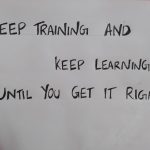 EEP TRAINING AND
KEEP LEARNING
UNTIL YOU GET IT RIGH